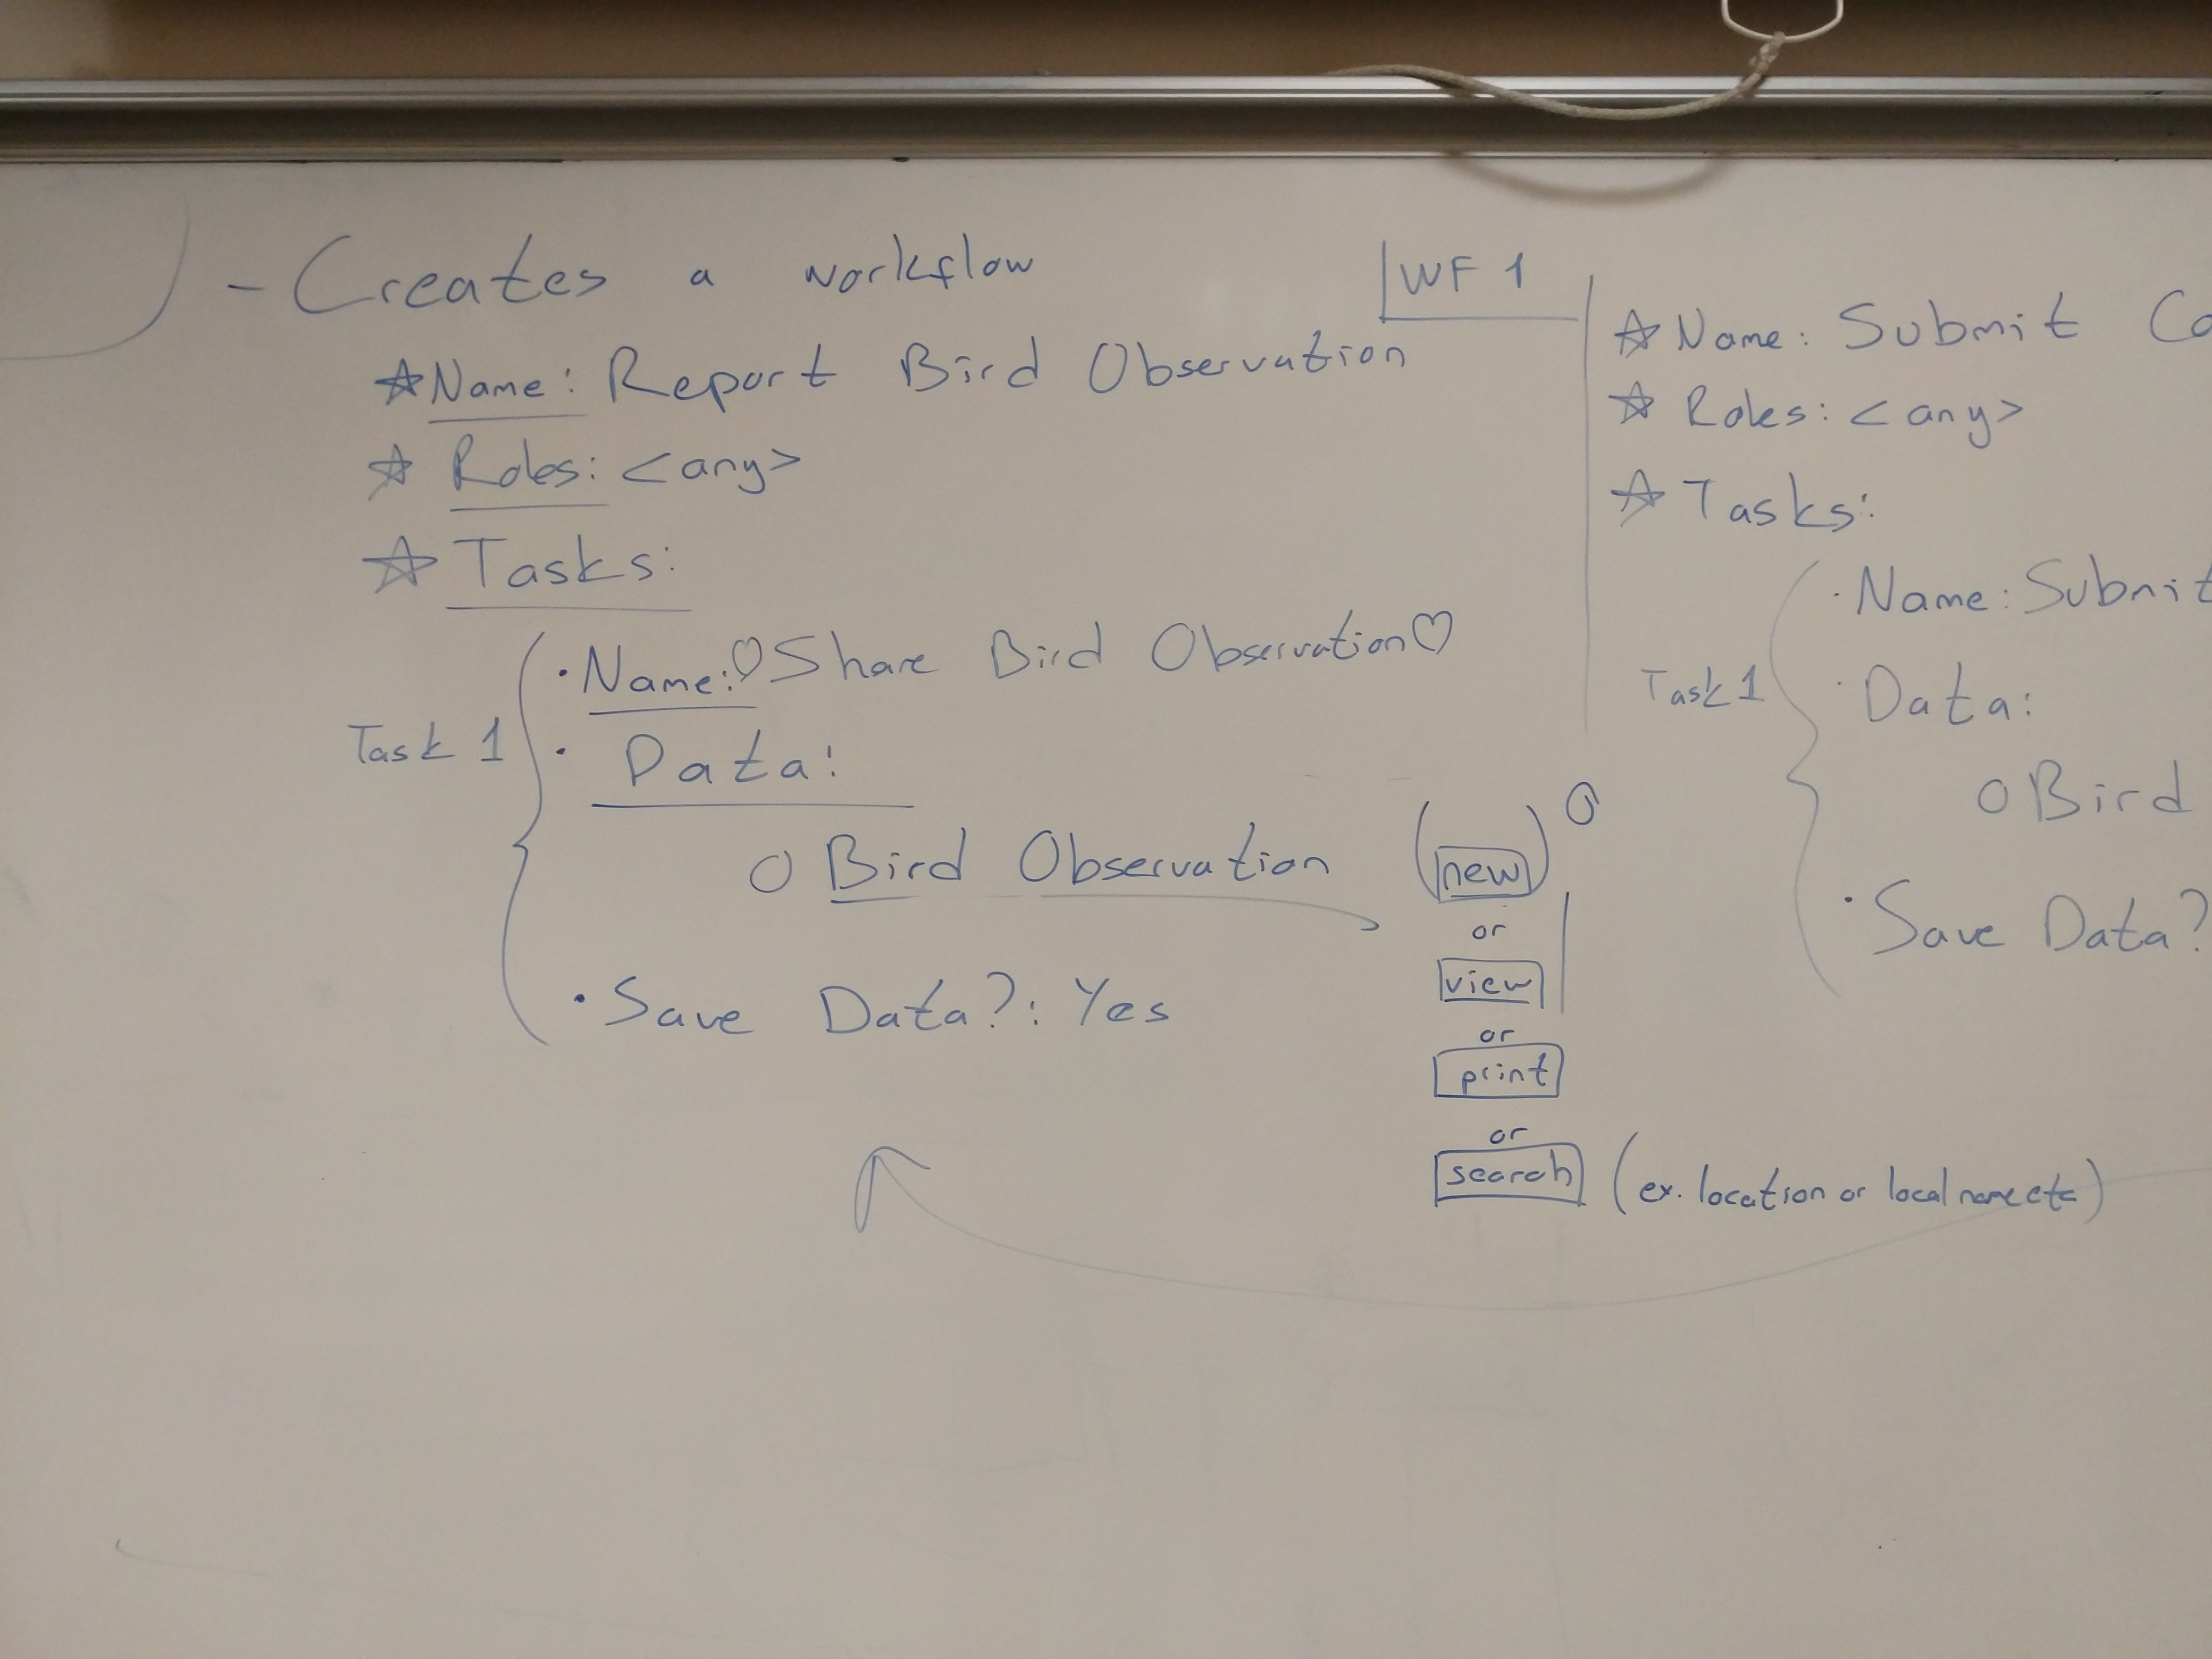 - Creates a workflow
WF 1
☆ Name: Report Bird Observation
☆ Roles: <any>
☆ Tasks:
Task 1
· Name: ♡ Share Bird Observation ♡
· Data:
○ Bird Observation (new)
or
view
or
print
or
search (ex. location or local name etc)
· Save Data?: Yes
☆ Name: Submit Co
☆ Roles: <any>
☆ Tasks:
Task 1
· Name: Submit
· Data:
○ Bird
· Save Data?